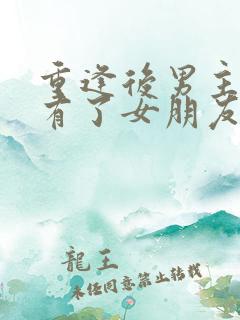 重逢後男主
有了女朋友
龍王
未經同意禁止轉載